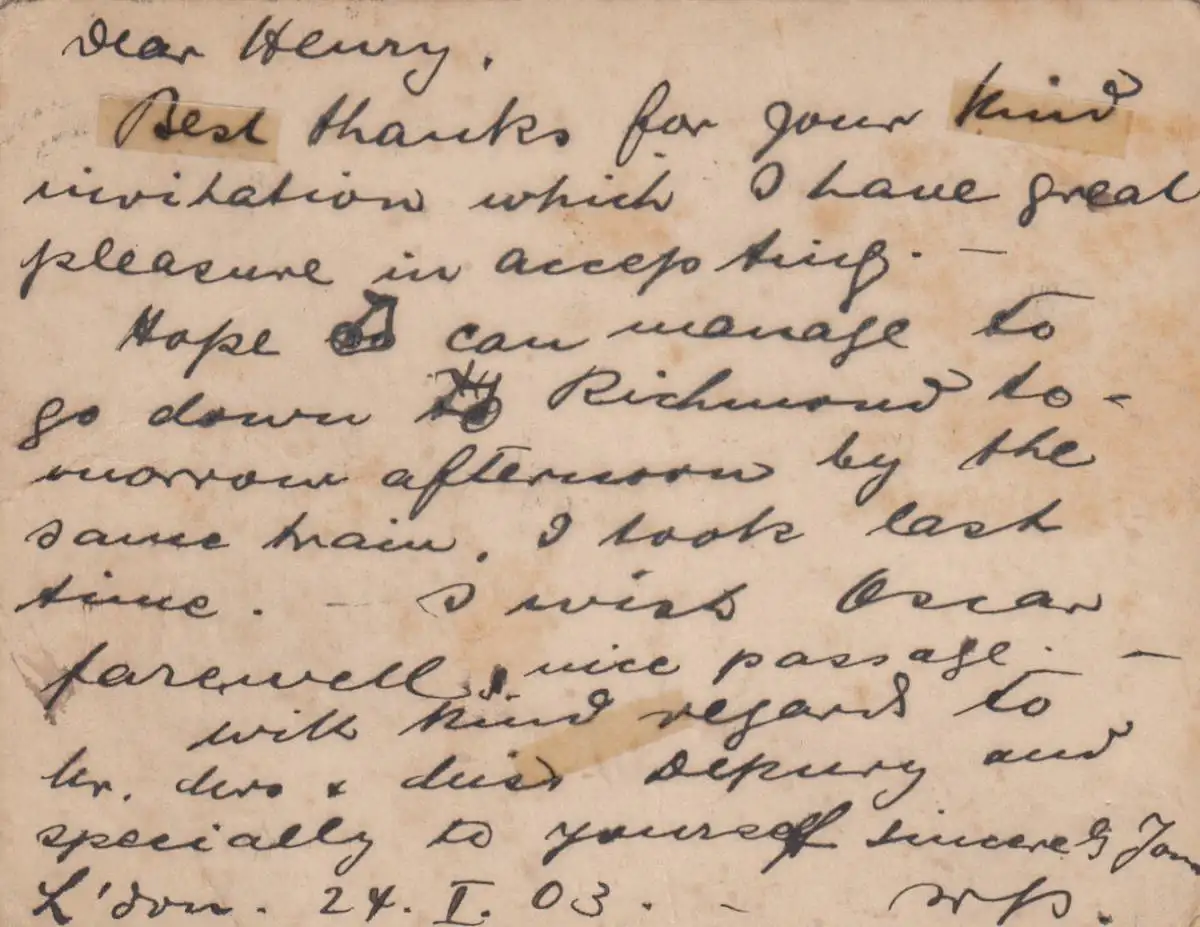 Dear Henry.
Best thanks for your kind
invitation which I have great
pleasure in accepting. —
Hope can manage to
go down to Richmond to-
morrow afternoon by the
same train. I took last
time. — I wish Oscar
farewell, nice passage. —
with kind regards to
Mr. Mrs & Miss Depury and
specially to yourself sincerely Your
L'don. 24. I. 03. -